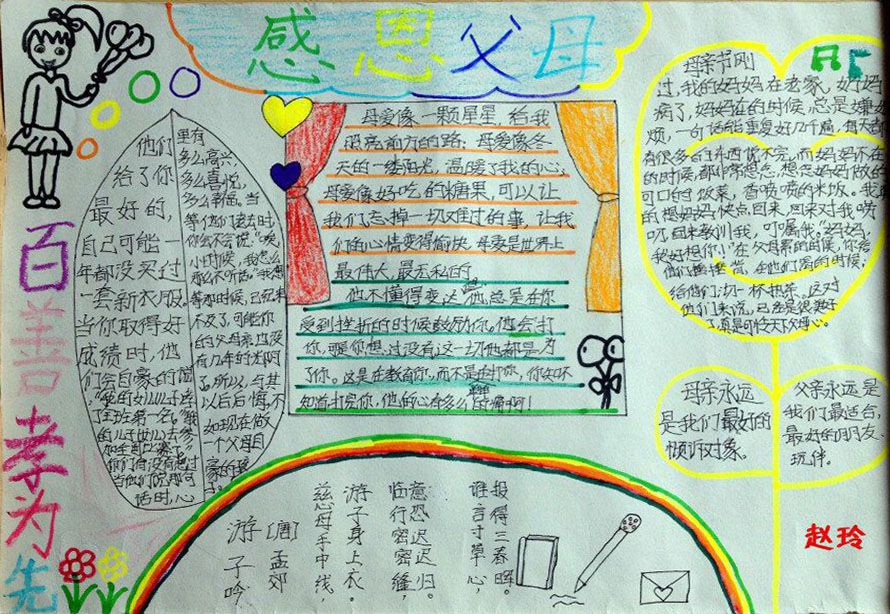 感恩父母
百善孝为先
他们
给了你
最好的,
自己可能一
年都没买过
一套新衣服。
当你取得好
成绩时,他
们会自豪的说
全班第一名。"
话时,心
里有
多么高兴,
多么喜悦,
多么幸福。当
等他们离去时,
你会不会说:"唉,
小时候,我怎么
那么不听话。"我想
等那时候,已经来
不及了,可能你
的父母亲也没
有几年的光阴
了。所以,与其
以后后悔,不
如现在做
一个父母自
豪的孩
子。
母爱像一颗星星,给我
照亮前方的路;母爱像冬
天的一缕阳光,温暖了我的心;
母爱像好吃的糖果,可以让
我们忘掉一切难过的事,让我
们的心情变得愉快。母爱是世界上
最伟大、最无私的。
他不懂得表达,他总是在你
受到挫折的时候鼓励你,他会打
你,可是你想过没有这一切他都是为
了你。这是在教育你,而不是在打你,你知不
知道打完你,他的心有多么的痛啊!
母亲节刚
过,我的妈妈在老家,妈妈
病了,妈妈在的时候,总是嫌妈
烦,一句话能重复好几千遍,每天者
有很多的东西吃不完。而妈妈不在
的时候,都非常想念,想念妈妈做的
可口的饭菜,香喷喷的米饭。我真
的想妈妈快点回来,回来对我唠
叨,回来教训我,叮嘱我。妈妈,
我好想你!"在父母累的时候,你给
他们捶捶背,在他们渴的时候,
给他们沏一杯热茶,这对
他们来说,已经是很满足
了,真是可怜天下父母心。
母亲永远
是我们最好的
倾诉对象。
父亲永远是
我们最适合、
最好的朋友、
玩伴。
游子吟
[唐]孟郊
慈母手中线,
游子身上衣。
临行密密缝,
意恐迟迟归。
谁言寸草心,
报得三春晖。
赵玲